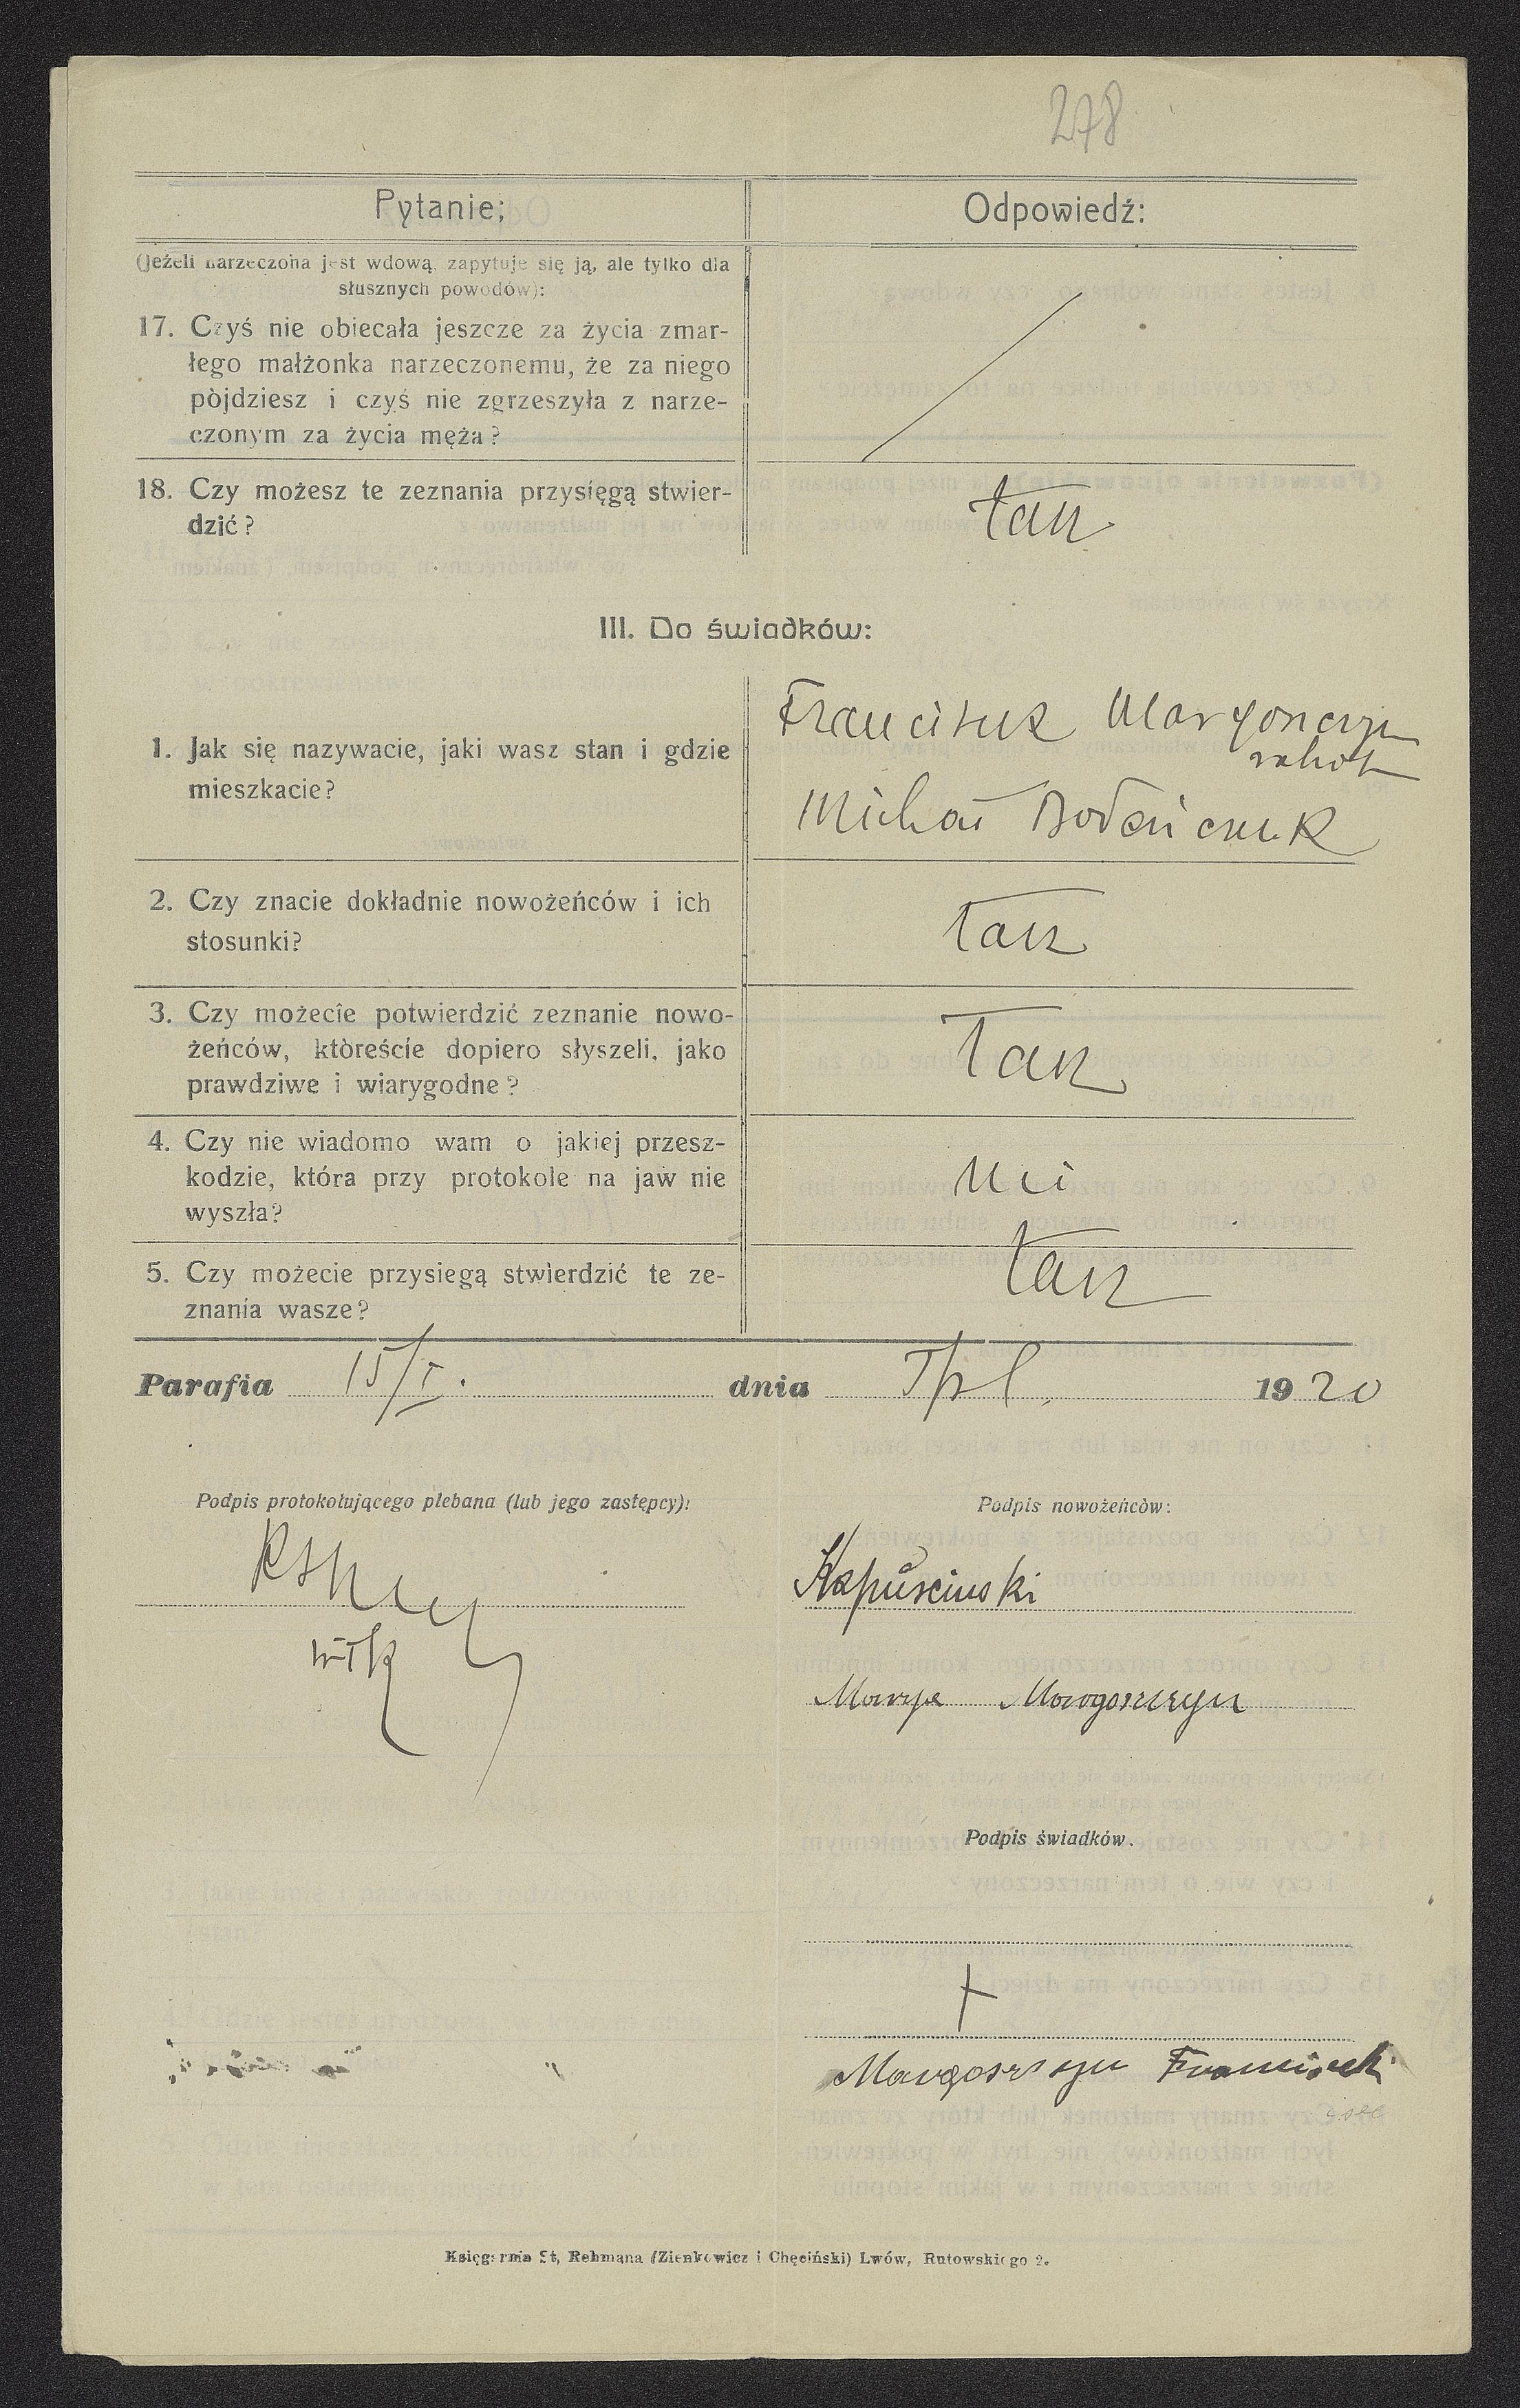 278
Pytanie: Odpowiedź:
(Jeżeli narzeczona jest wdową, zapytuje się ją, ale tylko dla
słusznych powodów):
17. Czyś nie obiecała jeszcze za życia zmar-
łego małżonka narzeczonemu, że za niego
pòjdziesz i czyś nie zgrzeszyła z narze-
czonym za życia męża?
18. Czy możesz te zeznania przysięgą stwier-
dzić? tak
III. Do świadków:
1. Jak się nazywacie, jaki wasz stan i gdzie
mieszkacie?
Franciszek Margoszczyn
Michał
2. Czy znacie dokładnie nowożeńców i ich
stosunki? tak
3. Czy możecie potwierdzić zeznanie nowo-
żeńców, któreście dopiero słyszeli, jako
prawdziwe i wiarygodne? Tak
4. Czy nie wiadomo wam o jakiej przesz-
kodzie, która przy protokole na jaw nie
wyszła? nie
5. Czy możecie przysiegą stwierdzić te ze-
znania wasze? tak
Parafia 15/I. dnia Tpl. 1920
Podpis protokołującego plebana (lub jego zastępcy): Podpis nowożeńców:
Kapuścinski
wik
Marya Margoszczyn
Podpis świadków.
+
Margoszczyn Franciszek
Księgarnia St, Rehmana (Zienkowicz i Chęciński) Lwów, Rutowskiego 2.